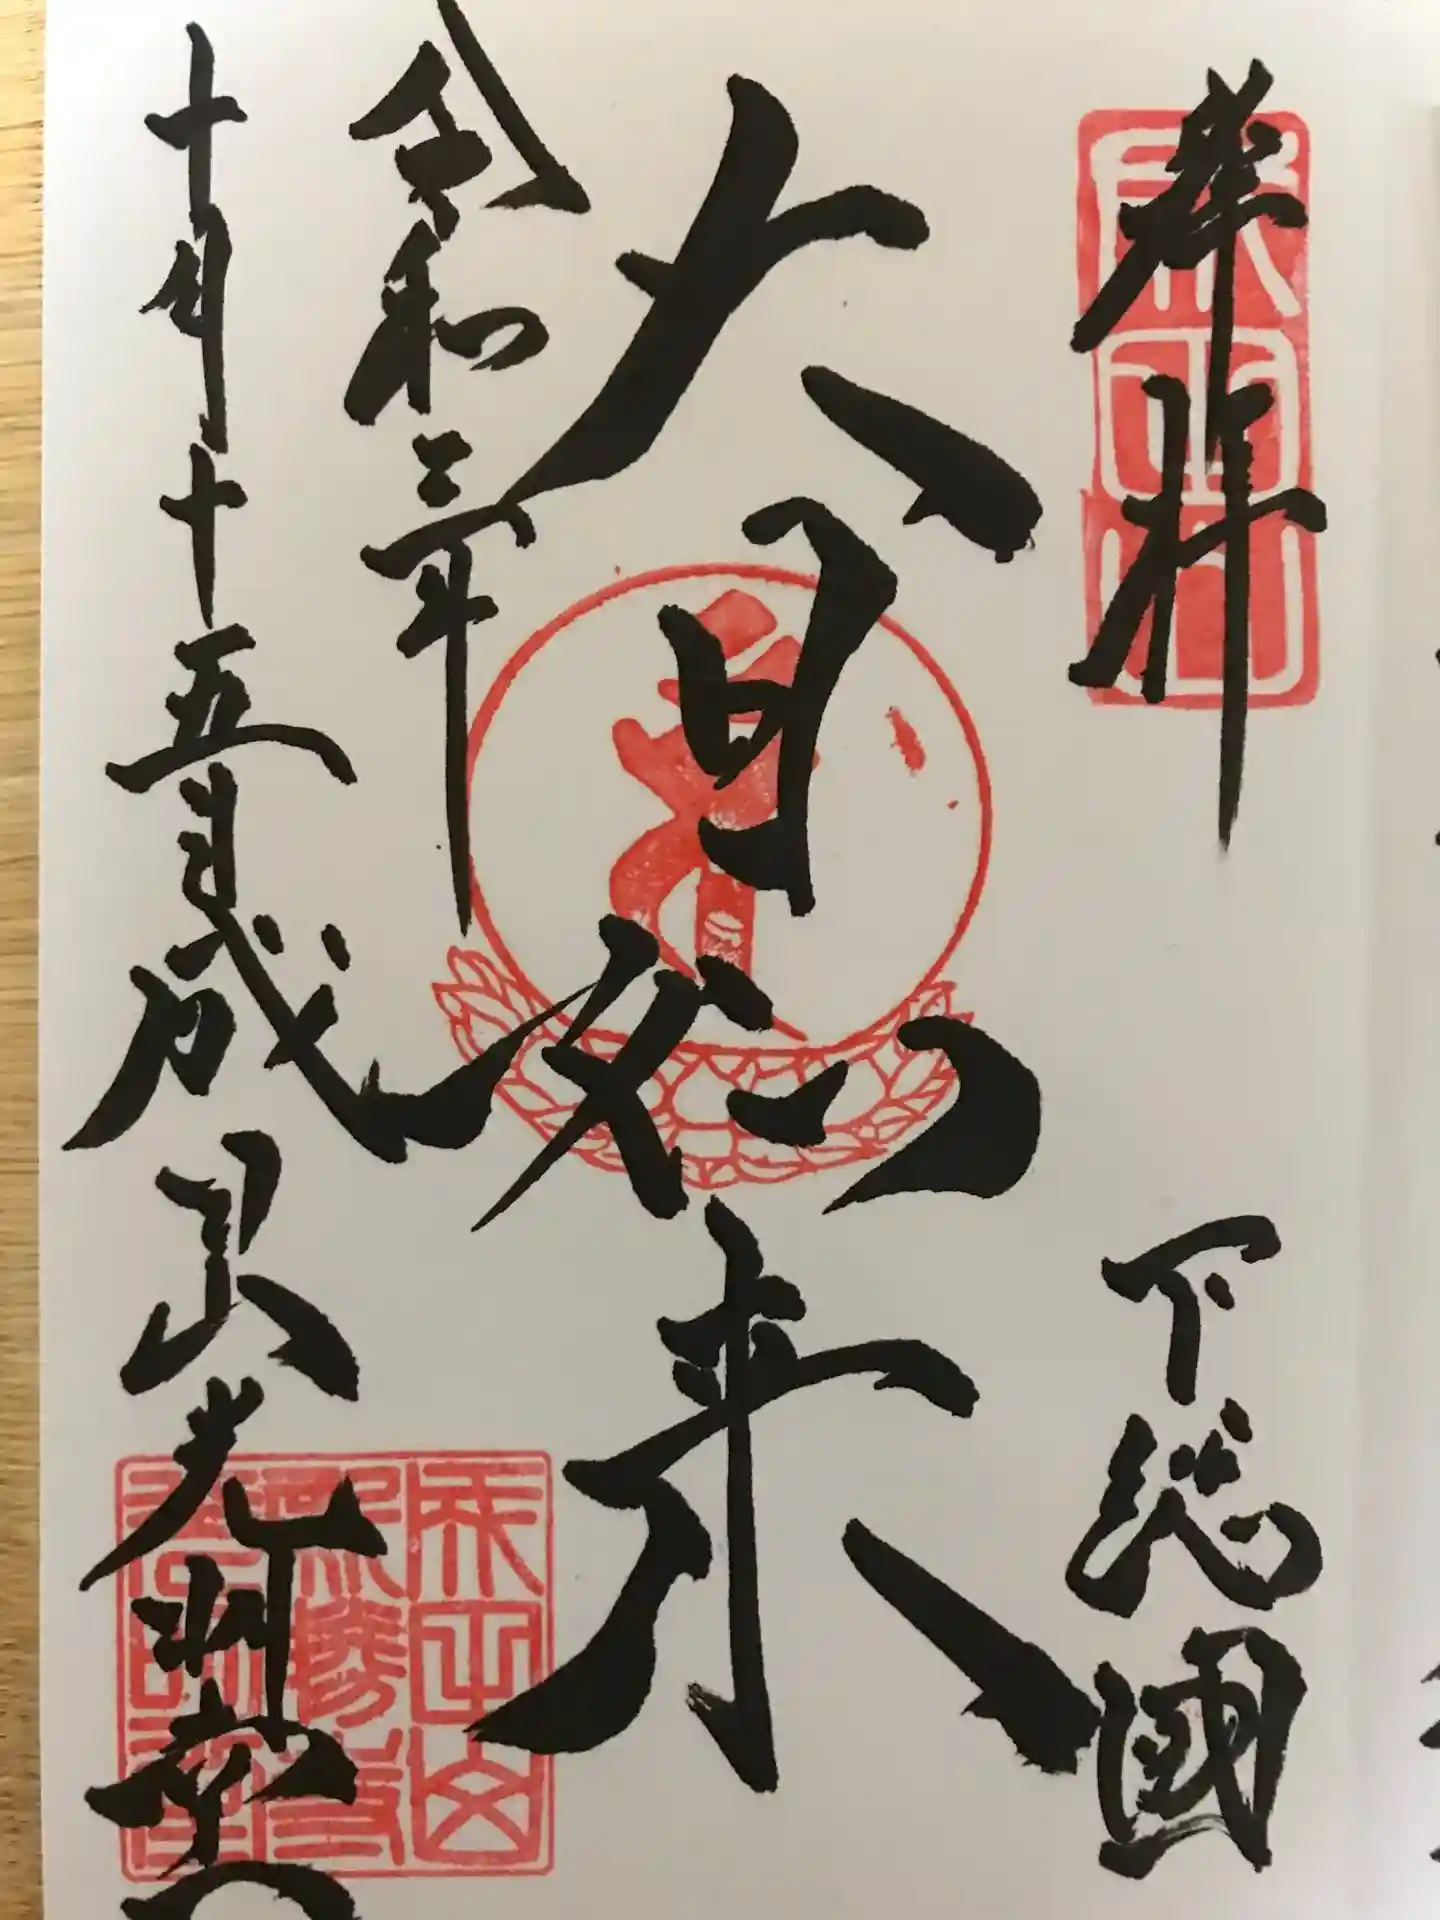 奉拝
下総國
大日如来
令和三年
十月十五日
成田山光明堂
成田山